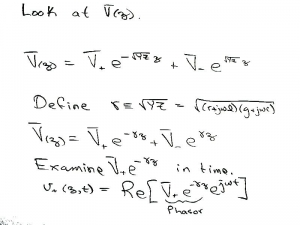 Look at V̄(z).
V̄(z) = V̄₊ e^(-√(YZ) z) + V̄₋ e^(√(YZ) z)
Define γ ≡ √(YZ) = √((r+jωl)(g+jωc))
V̄(z) = V̄₊ e^(-γz) + V̄₋ e^(γz)
Examine V̄₊ e^(-γz) in time.
v₊(z,t) = Re[V̄₊ e^(-γz) e^(jωt)]
Phasor